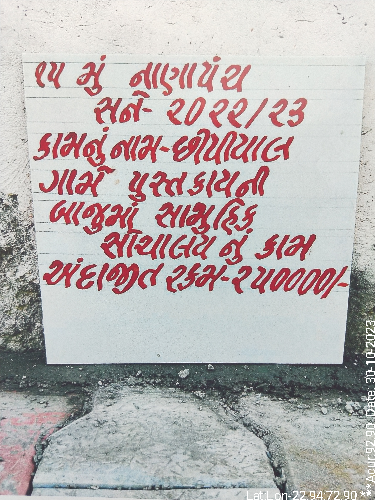 ૧૫ મું નાણાપંચ
સને- ૨૦૨૨/૨૩
કામનું નામ-છીપીયાલ
ગામે પુસ્તકાયની
બાજુમાં સામુહિક
સૌચાલય નું કામ
અંદાજીત રકમ-૨૫૦૦૦૦/-
Lat Lon-22.94,72.90***Acur-92.90, Date: 30-10-2023